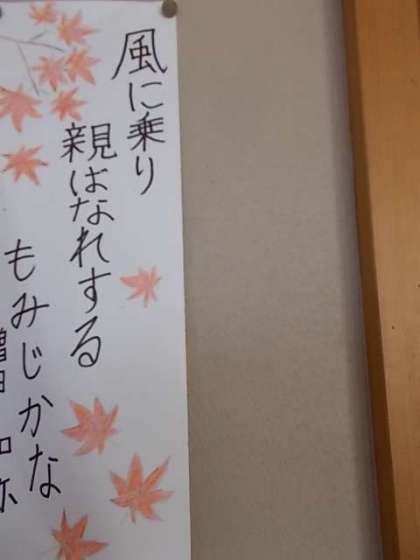 風に乗り
親はなれする
もみじかな